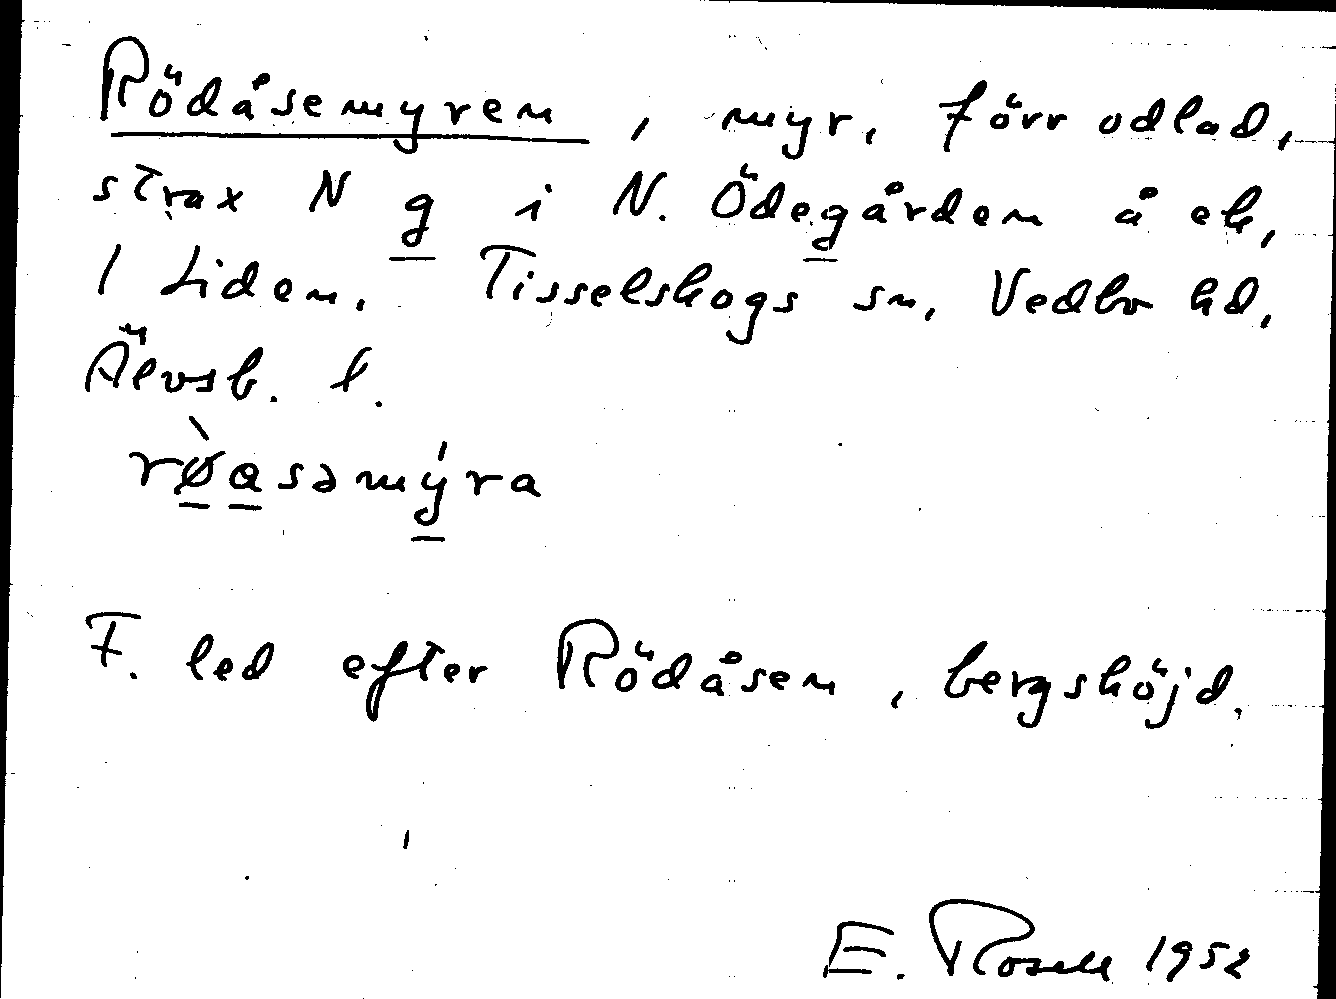 Rödåsemyren, myr, förr odlad,
strax N g i N. Ödegården å ek,
1 Liden. Tisselskogs sn, Vedbo hd,
Älvsb. l.
rø̀asəmýra
F. led efter Rödåsen, bergshöjd.
E. Rosell 1952